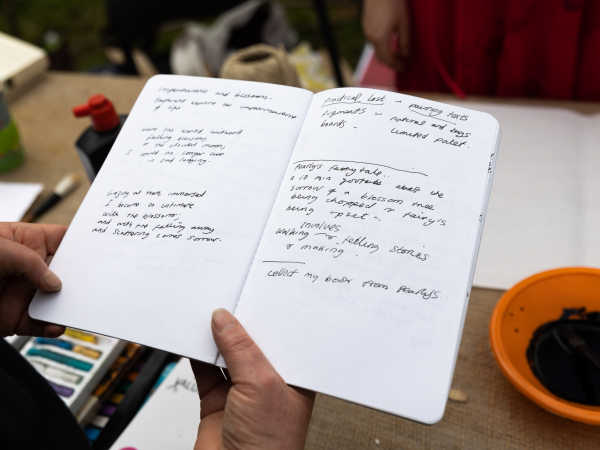 Impermanence and blossom.
Japanese
of life
Were the world without
falling blossoms
or the clouded moon,
I could no longer live
in sad longing.
Gazing at them immersed
I become so intimate
with the blossoms,
and with the falling away
and scattering comes sorrow.
Practical List -
Pigments - natural and
boards - limited palet.
Pearly's Fairytale..
a 10 min about the
sorrow of a blossom tree
being chopped & fairy's
being upset -
Involves
walking telling stories
& making.
collect my book from Pearlys